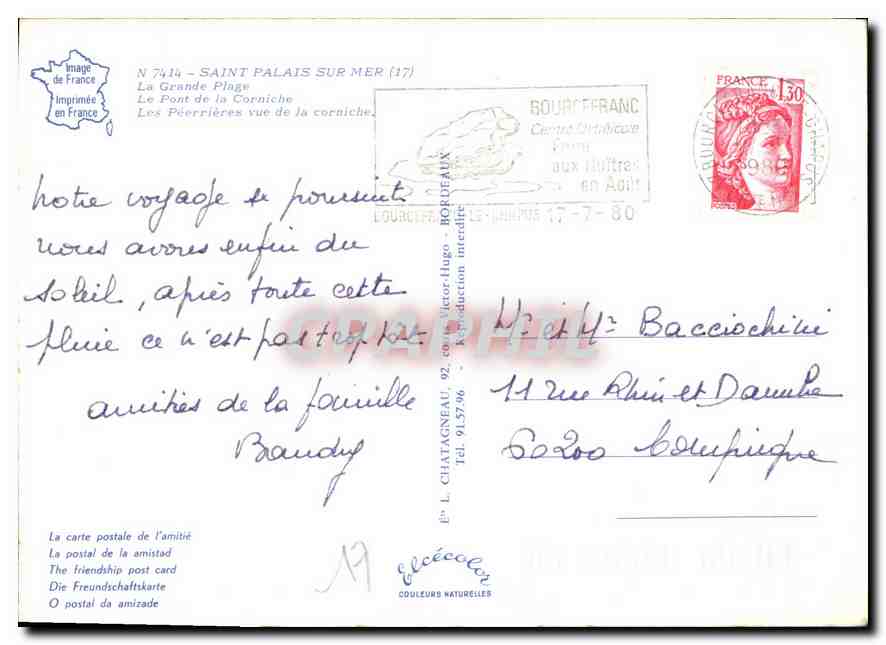 Image
de France
Imprimée
en France
N 7414 - SAINT PALAIS SUR MER (17)
La Grande Plage
Le Pont de la Corniche
Les Péerrières vue de la corniche.
BOURCEFRANC
Centre Ostréicole
Foire
aux Huîtres
en Août
BOURCEFRANC-LE-CHAPUS 17-7-80
FRANCE 1,30
Notre voyage se poursuit
nous avons enfin du
soleil, après toute cette
pluie ce n'est pas trop tôt.
amitiés de la famille
Baudry
Mr et Me Bacciochini
11 rue Rhin et Danube
60200 Compiègne
Edn L. CHATAGNEAU, 92, cours Victor-Hugo - BORDEAUX
Tél. 91.57.96 - Reproduction interdite
CPAPHIL
La carte postale de l'amitié
La postal de la amistad
The friendship post card
Die Freundschaftskarte
O postal da amizade
17
Elcécolor
COULEURS NATURELLES